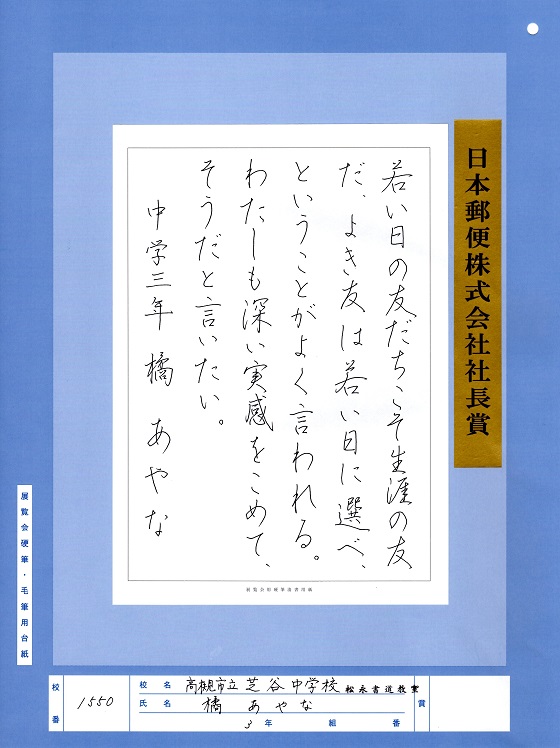 日本郵便株式会社社長賞
若い日の友だちこそ生涯の友
だ、よき友は若い日に選べ、
ということがよく言われる。
わたしも深い実感をこめて、
そうだと言いたい。
中学三年 橘 あやな
展覧会用硬筆清書用紙
展覧会硬筆・毛筆用台紙
校番 1550
校名 高槻市立芝谷中学校 松永書道教室
氏名 橘 あやな
3年 組 番
賞